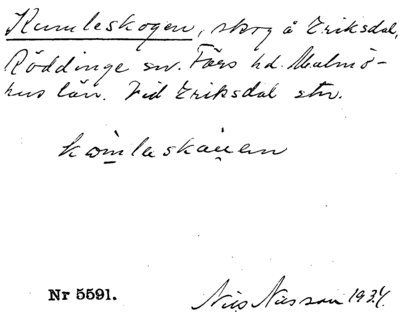 Kumleskogen, skog å Eriksdal,
Röddinge sn. Färs hd. Malmö-
hus län. Vid Eriksdal stn.
Nr 5591.
Nils Nilsson 1934.